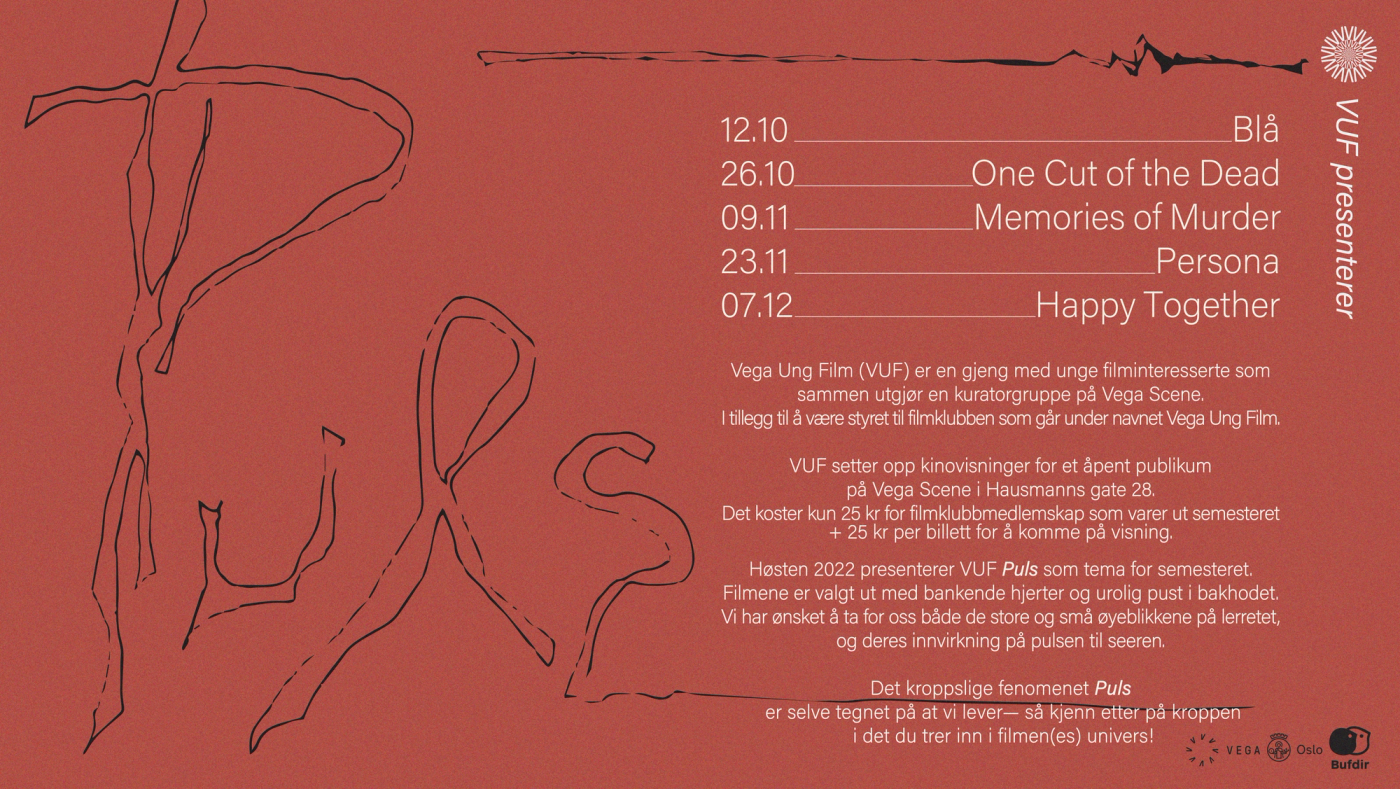 Puls
12.10 Blå
26.10 One Cut of the Dead
09.11 Memories of Murder
23.11 Persona
07.12 Happy Together
VUF presenterer
Vega Ung Film (VUF) er en gjeng med unge filminteresserte som
sammen utgjør en kuratorgruppe på Vega Scene.
I tillegg til å være styret til filmklubben som går under navnet Vega Ung Film.
VUF setter opp kinovisninger for et åpent publikum
på Vega Scene i Hausmanns gate 28.
Det koster kun 25 kr for filmklubbmedlemskap som varer ut semesteret
+ 25 kr per billett for å komme på visning.
Høsten 2022 presenterer VUF Puls som tema for semesteret.
Filmene er valgt ut med bankende hjerter og urolig pust i bakhodet.
Vi har ønsket å ta for oss både de store og små øyeblikkene på lerretet,
og deres innvirkning på pulsen til seeren.
Det kroppslige fenomenet Puls
er selve tegnet på at vi lever— så kjenn etter på kroppen
i det du trer inn i filmen(es) univers!
VEGA
Oslo
Bufdir